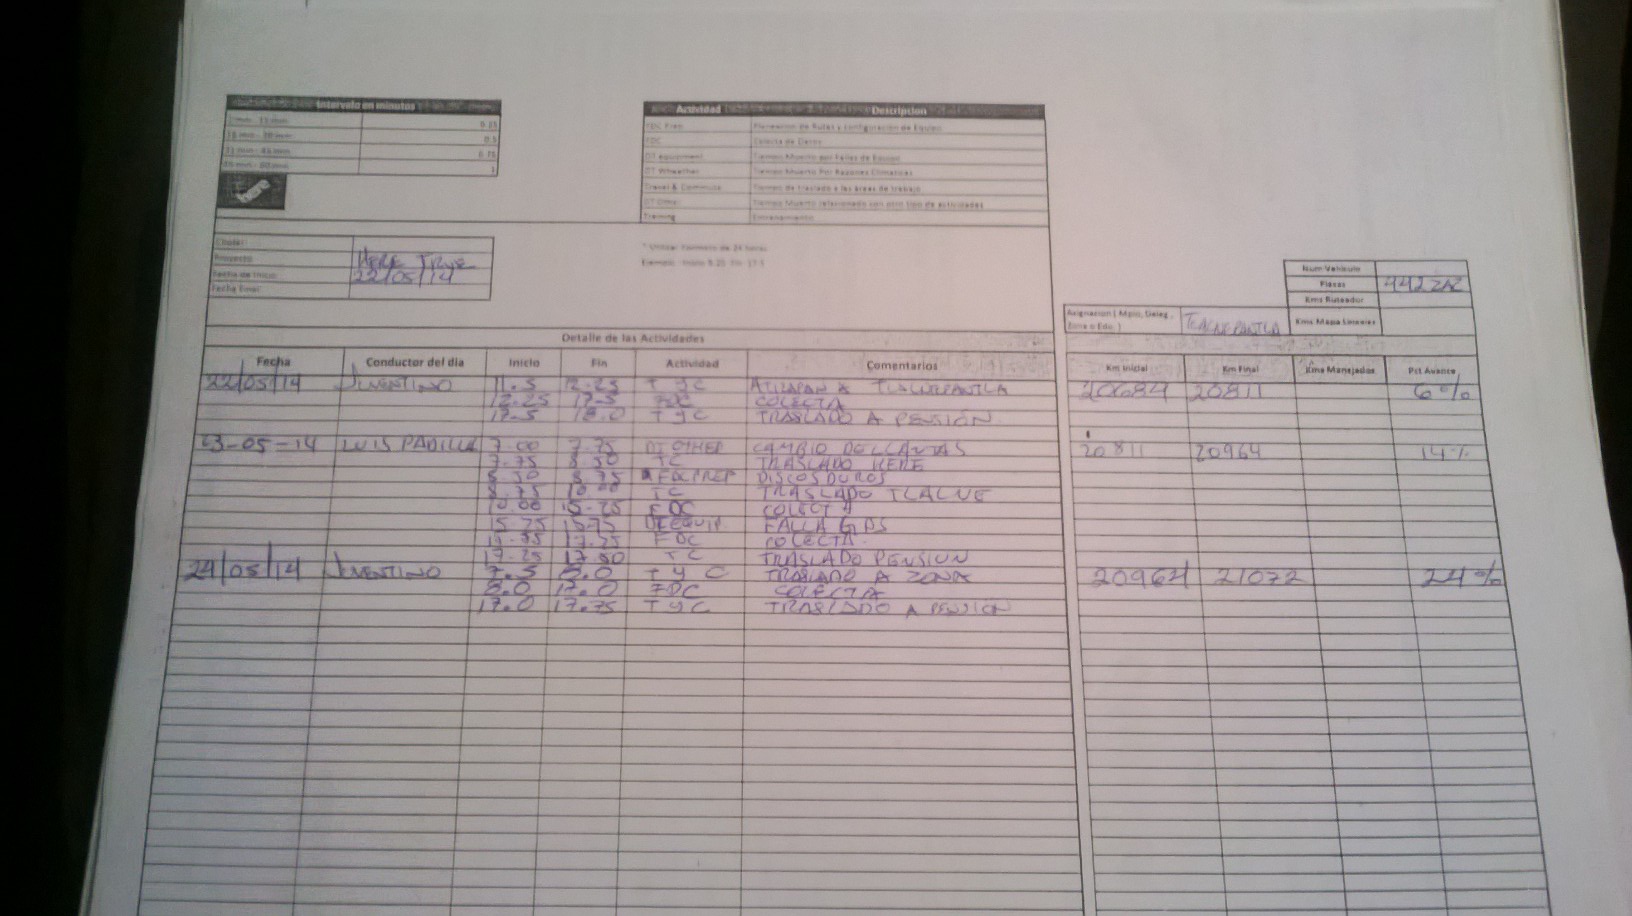 Intervalo en minutos
0.25
0.5
0.75
1
Actividad Description
FDC Prep Planeacion de Rutas y configuración de Equipo
FDC Colecta de Datos
DT equipment Tiempo Muerto por Fallas de Equipo
DT Wheather Tiempo Muerto Por Razones Climaticas
Travel & Commute Tiempo de traslado a las áreas de trabajo
DT Other Tiempo Muerto relacionado con otro tipo de actividades
Training Entrenamiento
* Utilizar formato de 24 horas
Proyecto HERE TRUE
Fecha de Inicio 22/05/14
Fecha Final
Num Vehiculo
Placas 442ZAZ
Kms Ruteador
Kms Mapa Sources
Asignacion ( Mpio, Deleg, Zona o Edo. ) TLALNEPANTLA
Detalle de las Actividades
Fecha Conductor del dia Inicio Fin Actividad Comentarios Km Inicial Km Final Kms Manejados Pct Avance
22/05/14 JUVENTINO 11.5 12.25 T y C ATIZAPAN A TLALNEPANTLA 20684 20811 6%
12.25 17.5 FDC COLECTA
17.5 18.0 T y C TRASLADO A PENSIÓN
23-05-14 LUIS PADILLA 7.00 7.75 DT OTHER CAMBIO DE LLANTAS 20811 20964 14%
7.75 8.50 TC TRASLADO HERE
8.50 8.75 FDCPREP DISCOS DUROS
8.75 10.00 TC TRASLADO TLALNE
10.00 15.75 FDC COLECTA
15.75 DT EQUIP FALLA GPS
17.25 FDC COLECTA
17.25 17.50 TC TRASLADO PENSION
24/05/14 JUVENTINO 7.5 8.0 T y C TRASLADO A ZONA 20964 21072 24%
8.0 17.0 FDC COLECTA
17.0 17.75 T y C TRASLADO A PENSIÓN